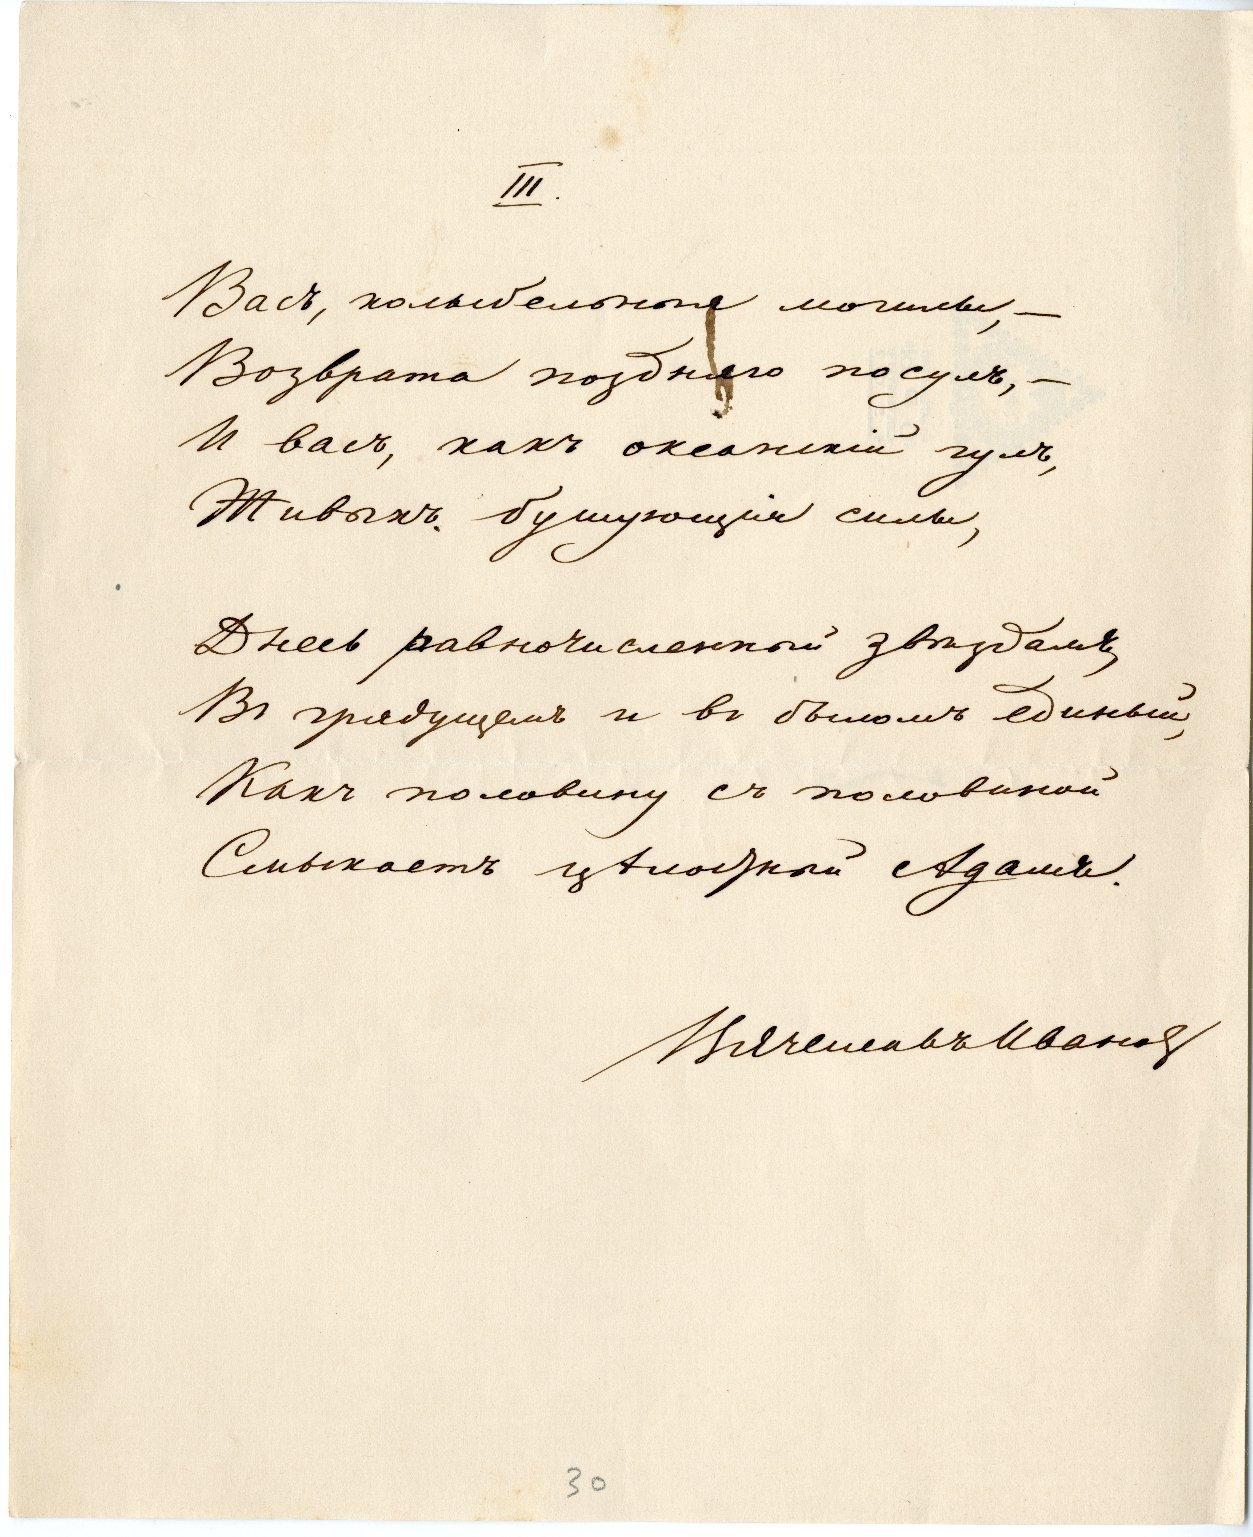 III.
Васъ, колыбельныя могилы, —
Возврата поздняго посулъ, —
И васъ, какъ океанскій гулъ,
Живыхъ бушующія силы,
Днесь равночисленный звѣздамъ,
Въ грядущемъ и въ быломъ единый,
Какъ половину съ половиной
Смыкаетъ цѣлокупный Адамъ.
Вячеславъ Ивановъ
30